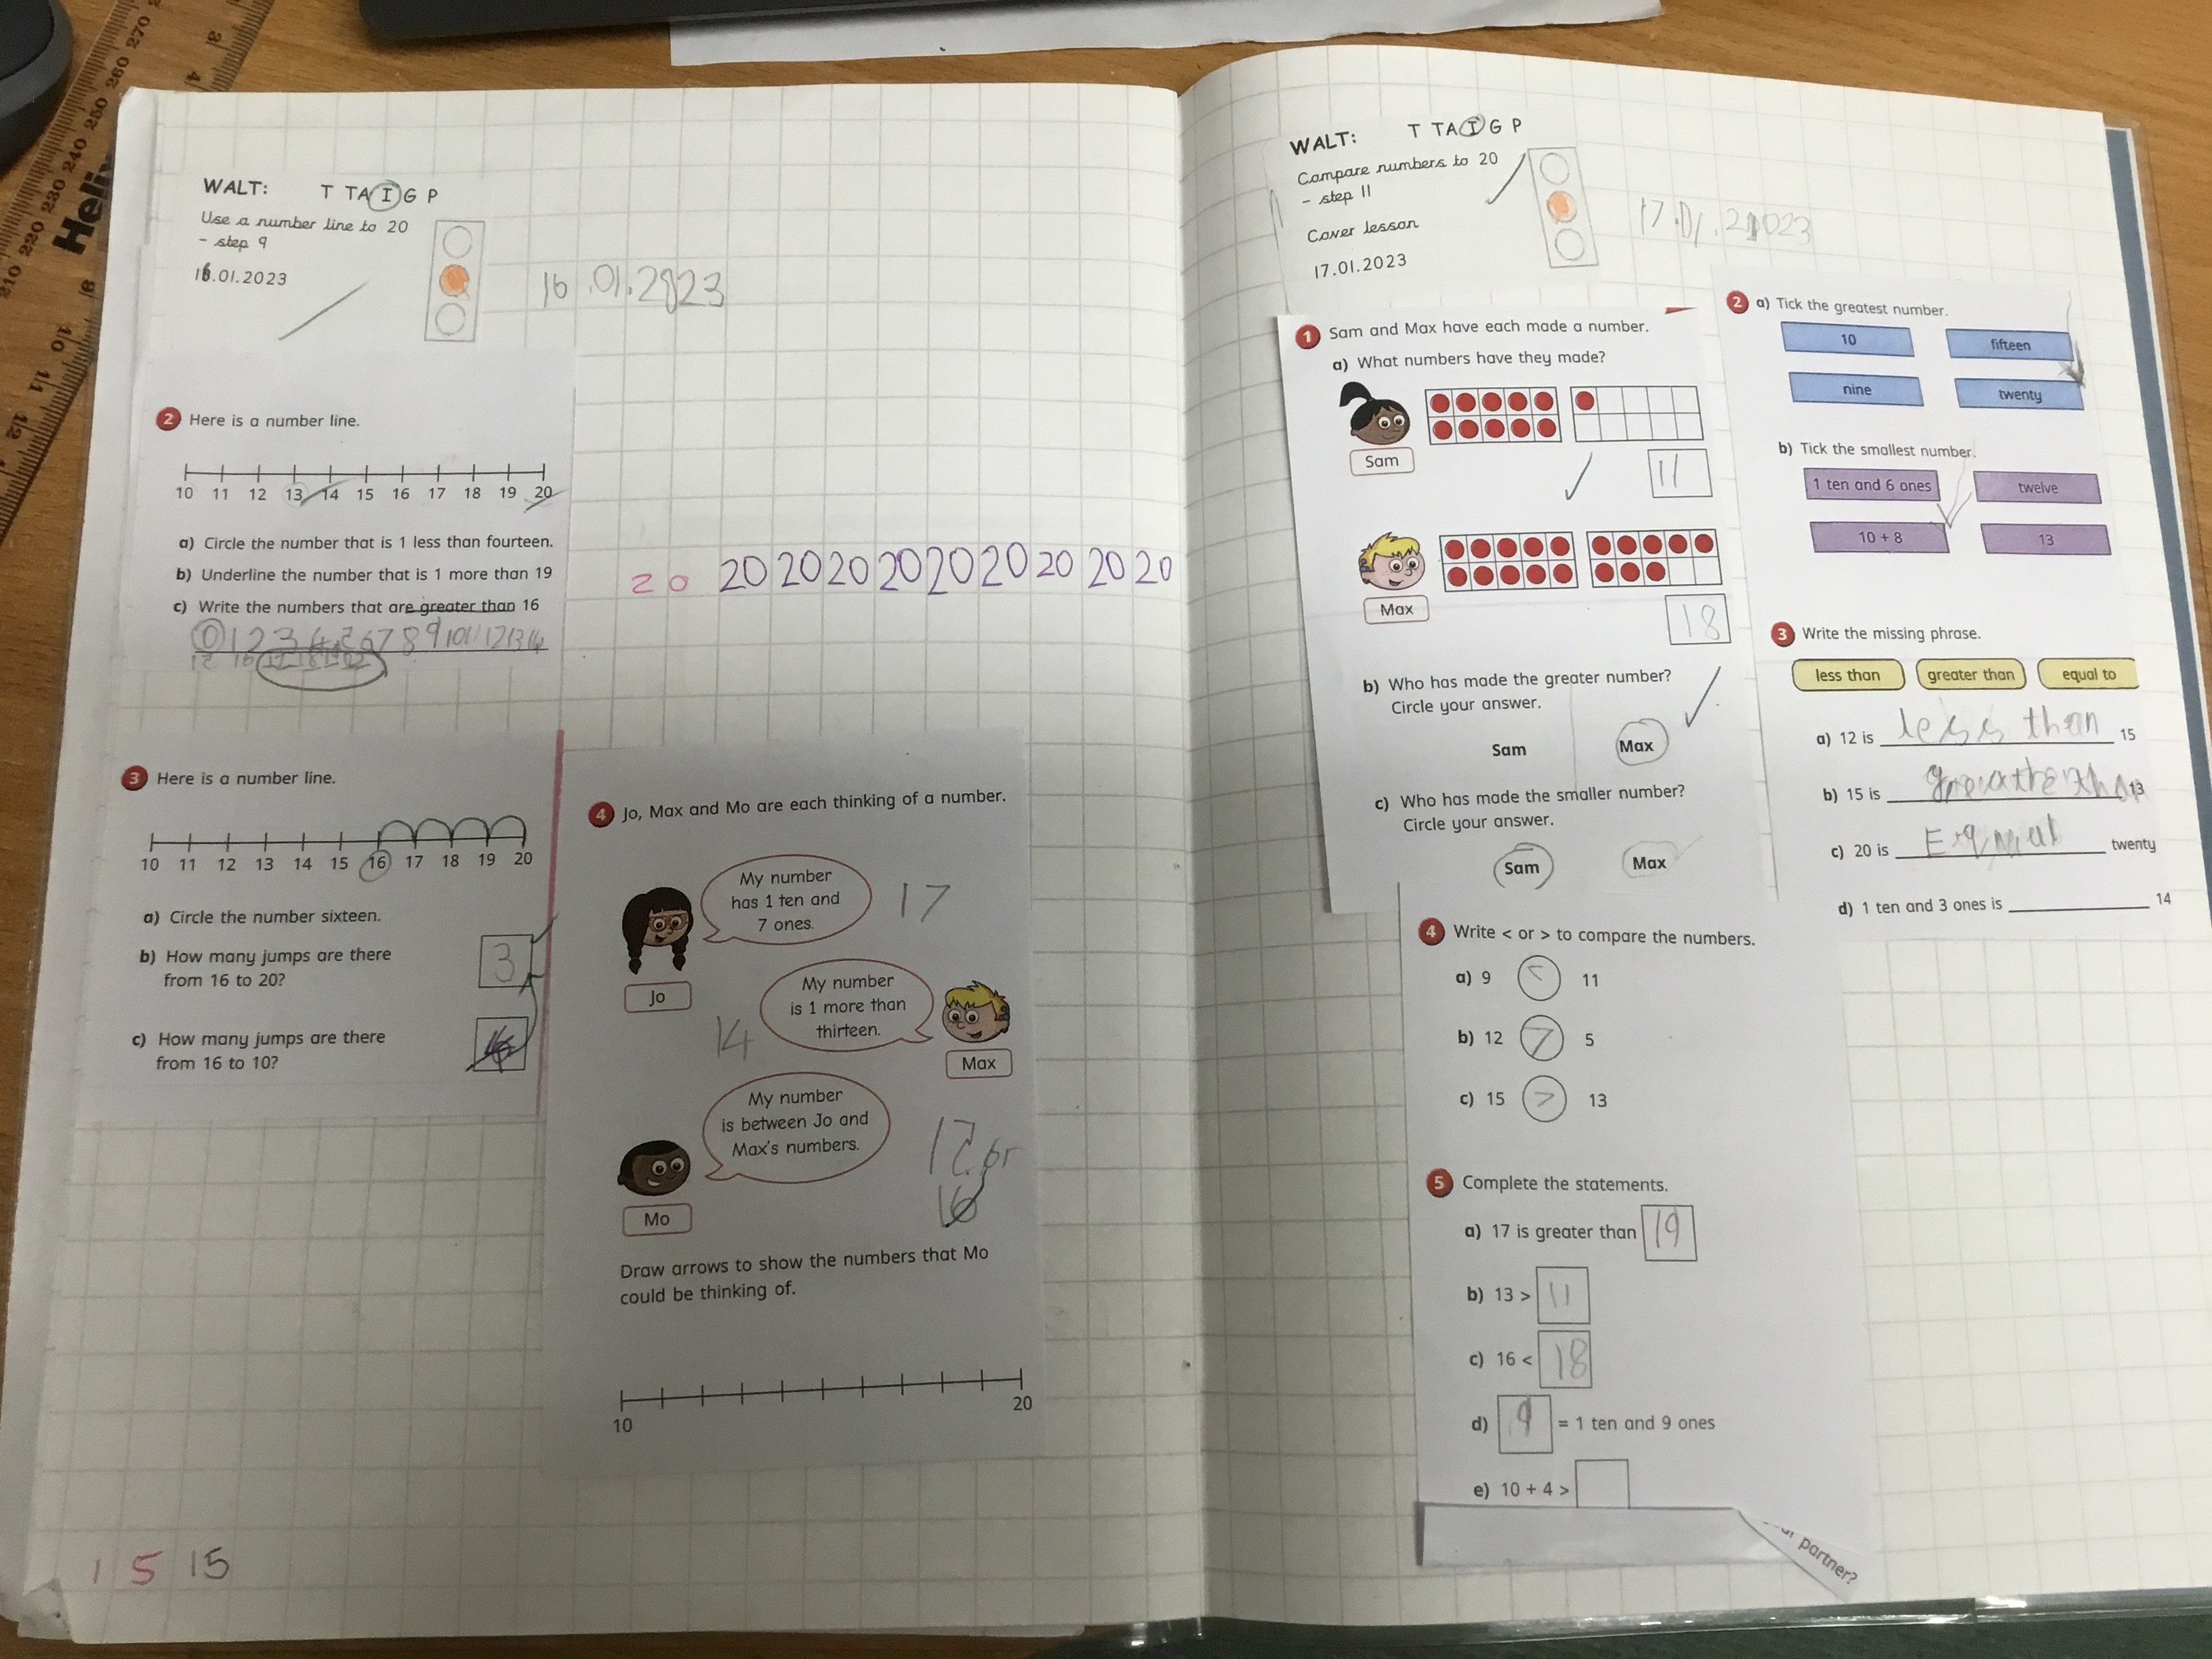 WALT: T TA I G P
Use a number line to 20
- step 9
16.01.2023
16.01.2023
2 Here is a number line.
10 11 12 13 14 15 16 17 18 19 20
a) Circle the number that is 1 less than fourteen.
b) Underline the number that is 1 more than 19
c) Write the numbers that are greater than 16
0 1 2 3 4 5 6 7 8 9 10 11 12 13 14
20 20 20 20 20 20 20 20 20 20
3 Here is a number line.
10 11 12 13 14 15 16 17 18 19 20
a) Circle the number sixteen.
b) How many jumps are there
from 16 to 20?
3
c) How many jumps are there
from 16 to 10?
4 Jo, Max and Mo are each thinking of a number.
My number
has 1 ten and
7 ones.
17
Jo
My number
is 1 more than
thirteen.
14
Max
My number
is between Jo and
Max's numbers.
or
16
Mo
Draw arrows to show the numbers that Mo
could be thinking of.
10 20
1 5 15
WALT: T TA I G P
Compare numbers to 20
- step 11
Cover lesson
17.01.2023
1 Sam and Max have each made a number.
a) What numbers have they made?
Sam
11
Max
18
b) Who has made the greater number?
Circle your answer.
Sam Max
c) Who has made the smaller number?
Circle your answer.
Sam Max
2 a) Tick the greatest number.
10 fifteen
nine twenty
b) Tick the smallest number.
1 ten and 6 ones twelve
10 + 8 13
3 Write the missing phrase.
less than greater than equal to
a) 12 is less than 15
b) 15 is greathe than 13
c) 20 is Eqnual twenty
d) 1 ten and 3 ones is 14
4 Write < or > to compare the numbers.
a) 9 < 11
b) 12 > 5
c) 15 > 13
5 Complete the statements.
a) 17 is greater than 19
b) 13 > 11
c) 16 < 18
d) 9 = 1 ten and 9 ones
e) 10 + 4 >
partner?
Helix
210 220 230 240 250 260 270